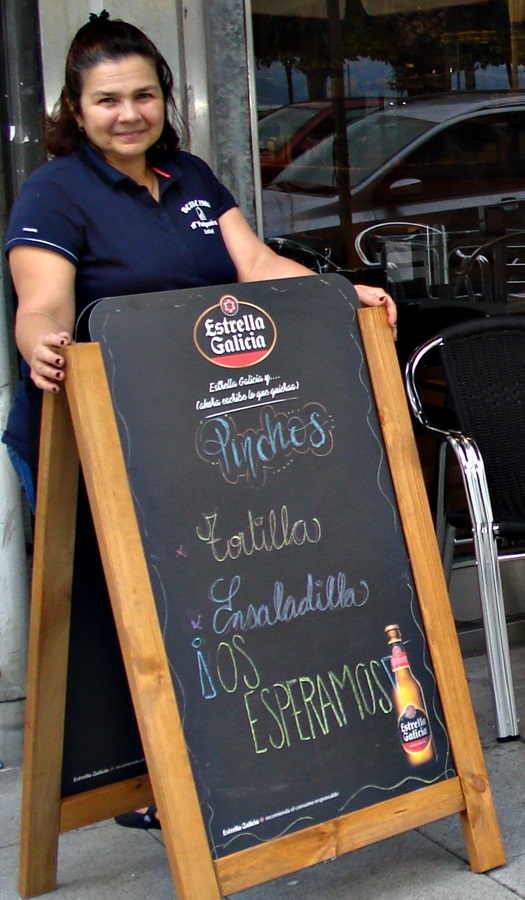 Estrella
Galicia
Estrella Galicia y....
(ahora escribe lo que quieras)
Pinchos
x Tortilla
x Ensaladilla
¡OS
ESPERAMOS!
Estrella
Galicia
Estrella Galicia recomienda el consumo responsable
Estrella Galicia